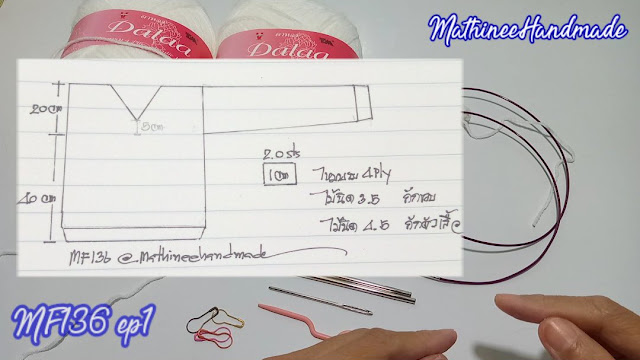 MathineeHandmade
amee
Dalaa
Dalaa
20 cm
5cm
40 cm
2.0 sts
1cm
ไหมพรม 4ply
ไม้นิต 3.5 ถักขอบ
ไม้นิต 4.5 ถักตัวเสื้อ
MF136 @mathineehandmade
MF136 ep1